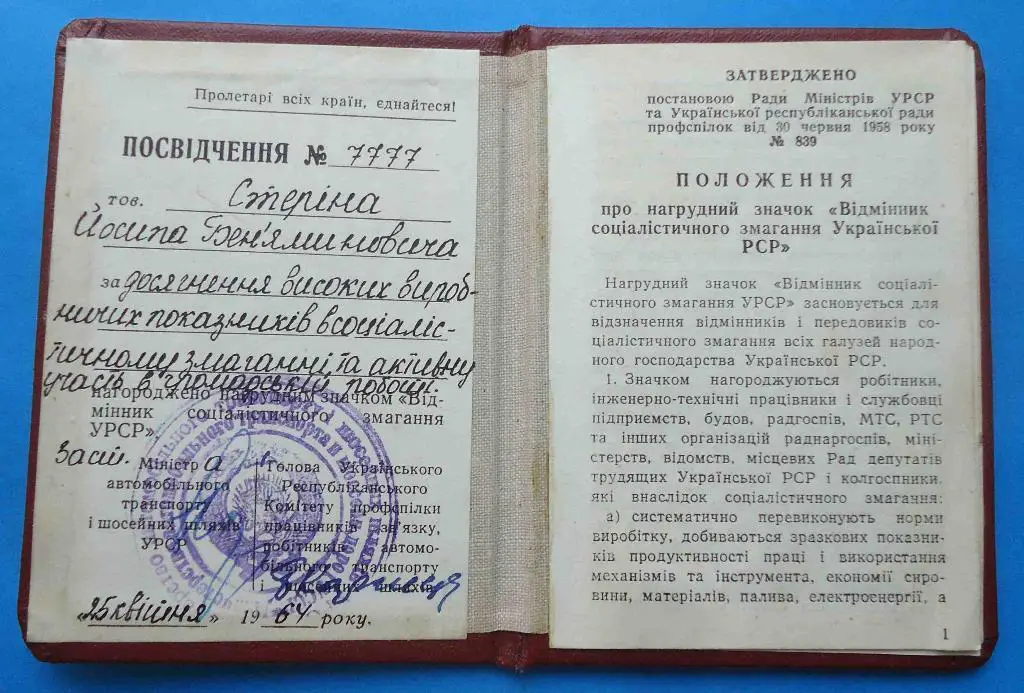 Пролетарі всіх країн, єднайтеся!
ПОСВІДЧЕННЯ № 7777
тов. Стеріна
Йосипа Бен'яминовича
за досягнення високих вироб-
ничих показників в соціаліс-
тичному змаганні та активну
участь в громадській роботі.
нагороджено нагрудним значком «Від-
мінник соціалістичного змагання
УРСР».
Заст. Міністра
автомобільного
транспорту
і шосейних шляхів
УРСР
Голова Українського
Республіканського
Комітету профспілки
працівників зв'язку,
робітників автомо-
більного транспорту
і шосейних шляхів
«25 квітня» 1964 року.
ЗАТВЕРДЖЕНО
постановою Ради Міністрів УРСР
та Української республіканської ради
профспілок від 30 червня 1958 року
№ 839
ПОЛОЖЕННЯ
про нагрудний значок «Відмінник
соціалістичного змагання Української
РСР»
Нагрудний значок «Відмінник соціалі-
стичного змагання УРСР» засновується для
відзначення відмінників і передовиків со-
ціалістичного змагання всіх галузей народ-
ного господарства Української РСР.
1. Значком нагороджуються робітники,
інженерно-технічні працівники і службовці
підприємств, будов, радгоспів, МТС, РТС
та інших організацій раднаргоспів, міні-
стерств, відомств, місцевих Рад депутатів
трудящих Української РСР і колгоспники,
які внаслідок соціалістичного змагання:
а) систематично перевиконують норми
виробітку, добиваються зразкових показ-
ників продуктивності праці і використання
механізмів та інструмента, економії сиро-
вини, матеріалів, палива, електроенергії, а
1